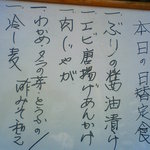 本日の日替定食
一、ぶりの醤油漬け
一、エビ唐揚げあんかけ
一、肉じゃが
一、わかめ、ふの芽とうふの
酢みそ和え
一、冷し麦